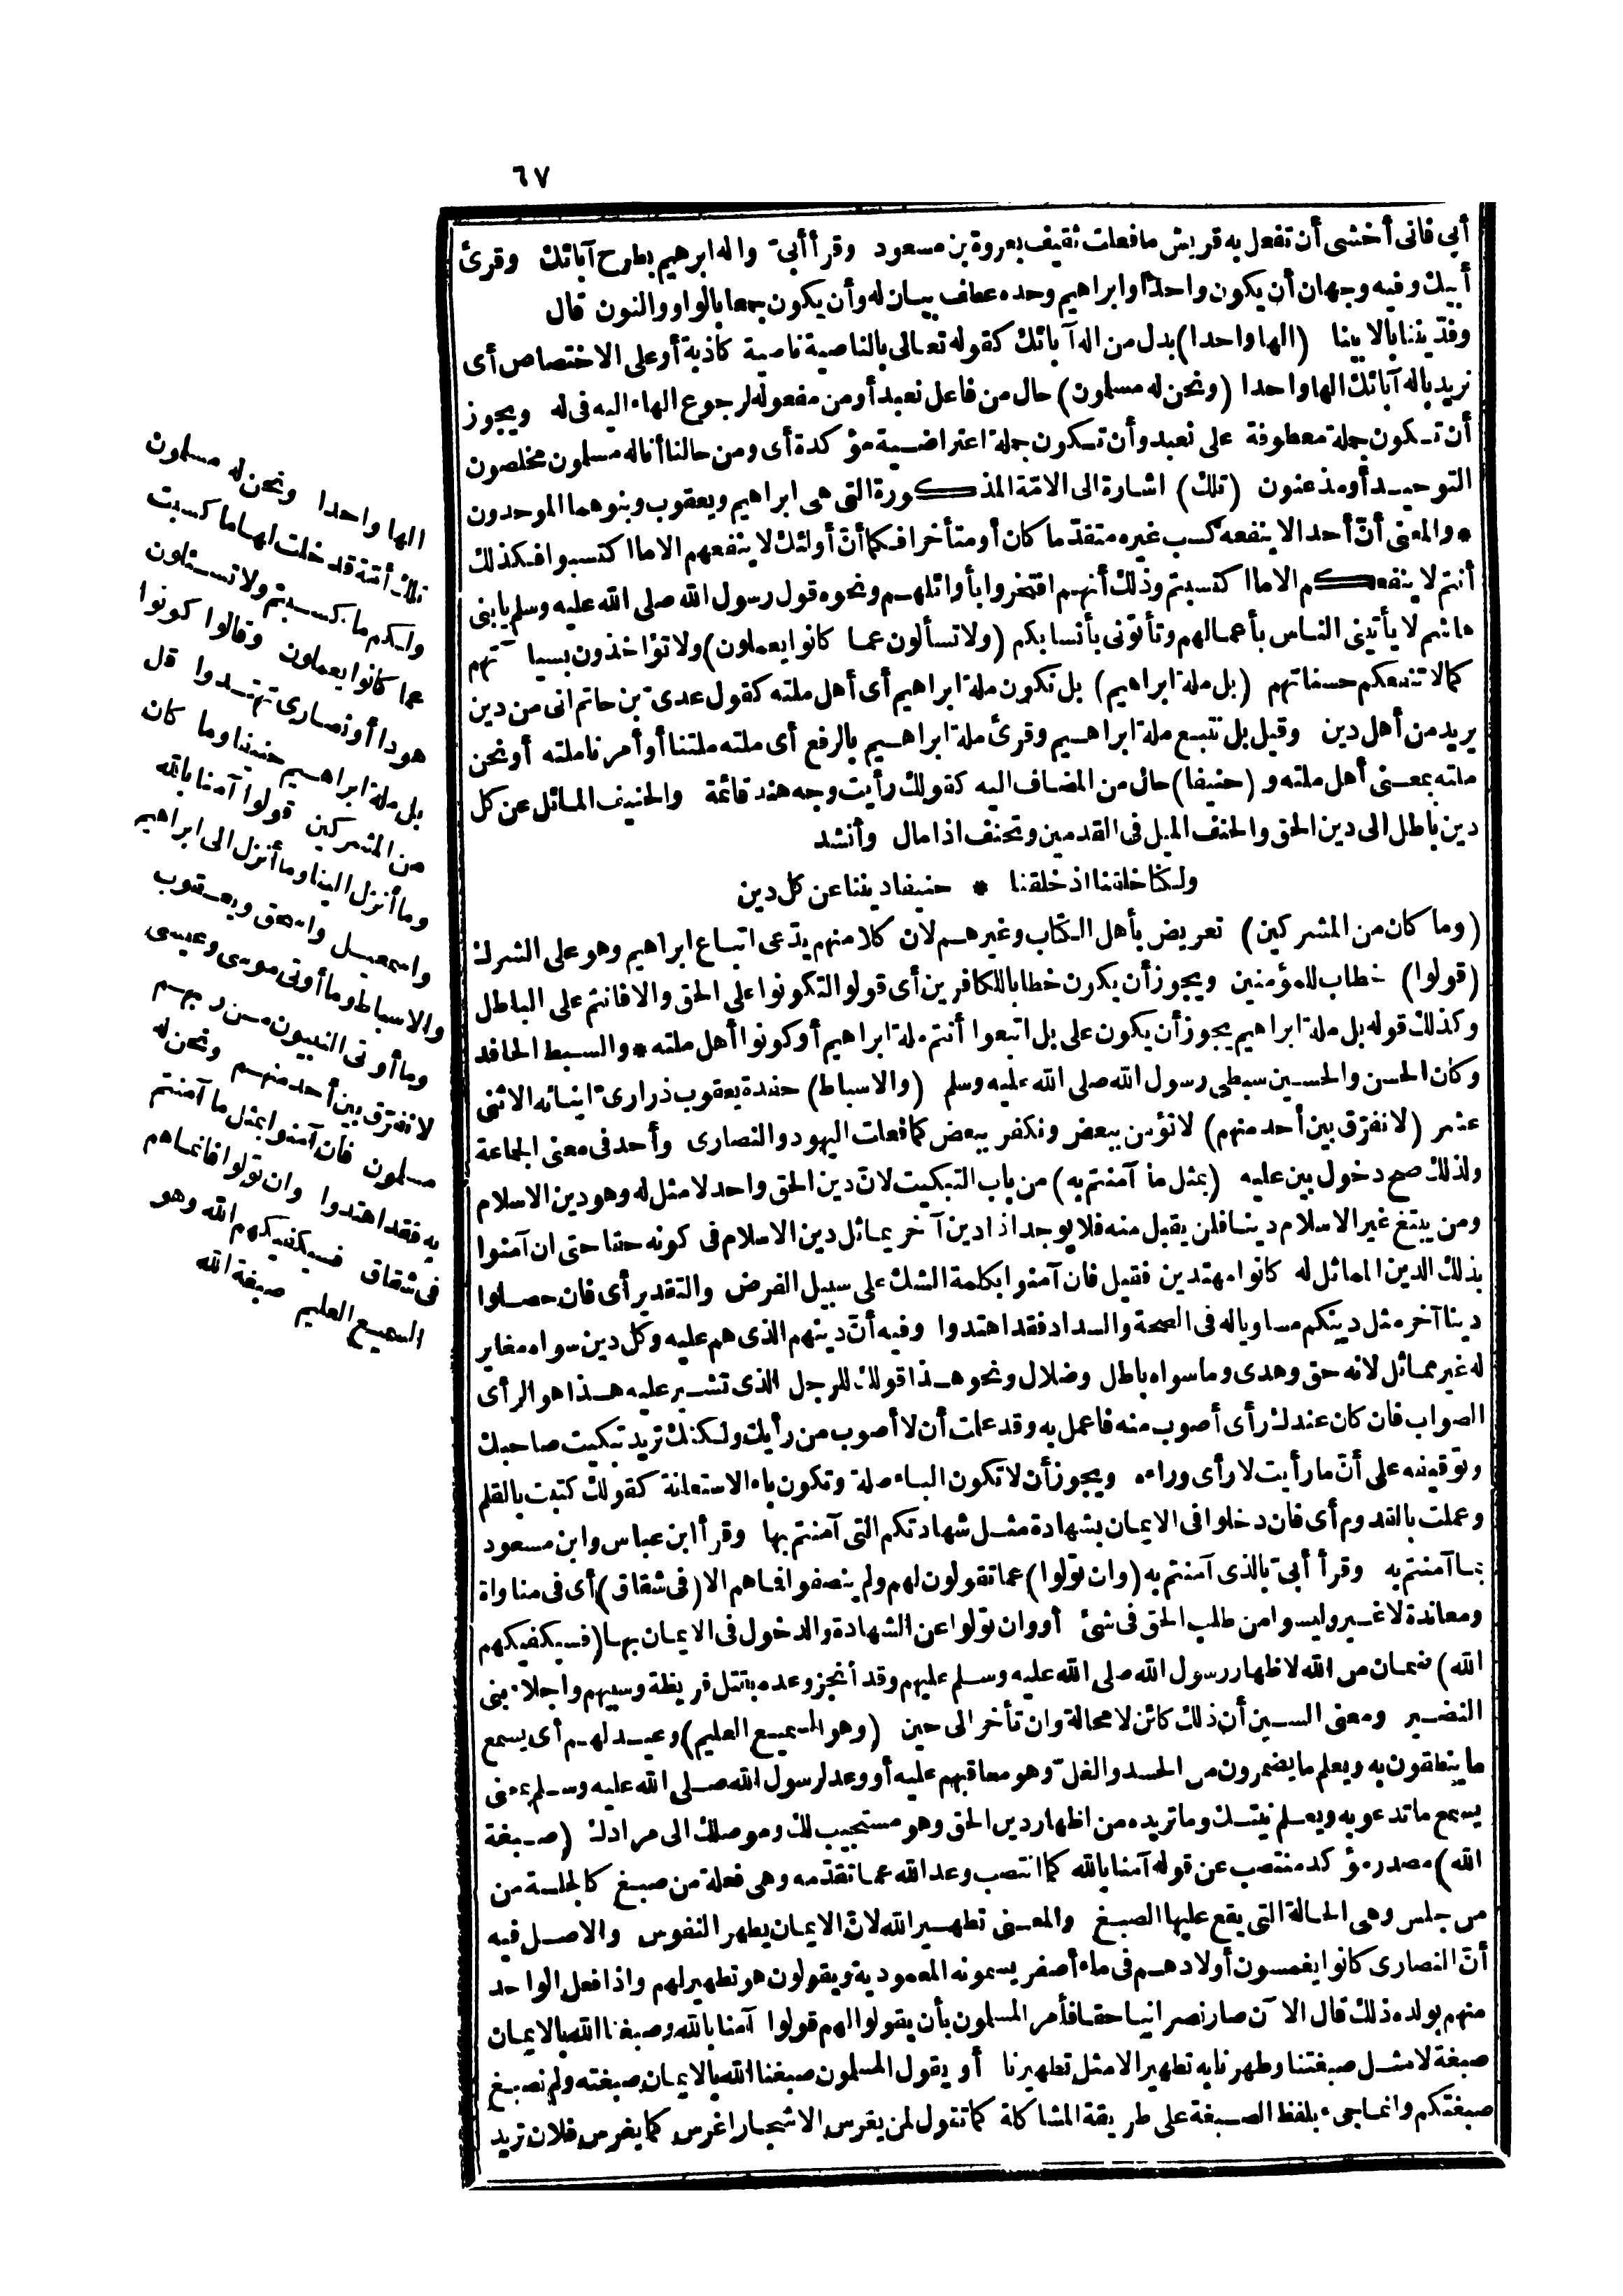 ٦٧
أبي فانى أخشى أن تفعل به قريش ما فعلت ثقيف بعروة بن مسعود وقرأ أبىّ واله ابرهيم بطرح آبائك وقرئ
أبيك وفيه وجهان أن يكون واحدا وابراهيم وحده عطف بيان له وأن يكون جمعا بالواو والنون قال
وفدّيننا بالابينا (الها واحدا) بدل من اله آبائك كقوله تعالى بالناصية ناصية كاذبة أو على الاختصاص أى
نريد باله آبائك الها واحدا (ونحن له مسلمون) حال من فاعل نعبد أو من مفعوله لرجوع الهاء اليه فى له ويجوز
أن تكون جملة معطوفة على نعبد وأن تكون جملة اعتراضية مؤكدة أى ومن حالنا أنا له مسلمون مخلصون
التوحيد أو مذعنون (تلك) اشارة الى الامّة المذكورة التى هى ابراهيم ويعقوب وبنوهما الموحدون
* والمعنى أنّ أحدا لا ينفعه كسب غيره متقدّما كان أو متأخرا فكما أنّ أولئك لا ينفعهم الا ما اكتسبوا فكذلك
أنتم لا ينفعكم الا ما اكتسبتم وذلك أنهم افتخروا بأوائلهم ونحوه قول رسول الله صلى الله عليه وسلم يا بنى
هاشم لا يأتينى الناس بأعمالهم وتأتونى بأنسابكم (ولا تسألون عما كانوا يعملون) ولا تؤاخذون بسيآتهم
كما لا تنفعكم حسناتهم (بل ملة ابراهيم) بل تكون ملة ابراهيم أى أهل ملته كقول عدىّ بن حاتم انى من دين
يريد من أهل دين وقيل بل نتبع ملة ابراهيم وقرئ ملة ابراهيم بالرفع أى ملته ملتنا أو أمرنا ملته أو نحن
ملته بمعنى أهل ملته و (حنيفا) حال من المضاف اليه كقولك رأيت وجه هند قائمة والحنيف المائل عن كل
دين باطل الى دين الحق والحنف الميل فى القدمين وتحنف اذا مال وأنشد
ولكنا خلقنا اذ خلقنا * حنيفا ديننا عن كل دين
(وما كان من المشركين) تعريض بأهل الكتاب وغيرهم لان كلا منهم يدّعى اتباع ابراهيم وهو على الشرك
(قولوا) خطاب للمؤمنين ويجوز أن يكون خطابا للكافرين أى قولوا لتكونوا على الحق والا فانتم على الباطل
وكذلك قوله بل ملة ابراهيم يجوز أن يكون على بل اتبعوا أنتم ملة ابراهيم أو كونوا أهل ملته * والسبط الحافد
وكان الحسن والحسين سبطى رسول الله صلى الله عليه وسلم (والاسباط) حفدة يعقوب ذرارىّ ابنائه الاثنى
عشر (لا نفرّق بين أحد منهم) لا نؤمن ببعض ونكفر ببعض كما فعلت اليهود والنصارى وأحد فى معنى الجماعة
ولذلك صح دخول بين عليه (بمثل ما آمنتم به) من باب التبكيت لانّ دين الحق واحد لا مثل له وهو دين الاسلام
ومن يبتغ غير الاسلام دينا فلن يقبل منه فلا يوجد اذا دين آخر يماثل دين الاسلام فى كونه حقا حتى ان آمنوا
بذلك الدين المماثل له كانوا مهتدين فقيل فان آمنوا بكلمة الشك على سبيل الفرض والتقدير أى فان حصلوا
دينا آخر مثل دينكم مساويا له فى الصحة والسداد فقد اهتدوا وفيه أنّ دينهم الذى هم عليه وكل دين سواه مغاير
له غير مماثل لانه حق وهدى وما سواه باطل وضلال ونحو هذا قولك للرجل الذى تشير عليه هذا هو الرأى
الصواب فان كان عندك رأى أصوب منه فاعمل به وقد علمت أن لا أصوب من رأيك ولكنك تريد تبكيت صاحبك
وتوقيفه على أنّ ما رأيت لا رأى وراءه ويجوز أن لا تكون الباء صلة وتكون باء الاستعانة كقولك كتبت بالقلم
وعملت بالقدوم أى فان دخلوا فى الايمان بشهادة مثل شهادتكم التى آمنتم بها وقرأ ابن عباس وابن مسعود
بما آمنتم به وقرأ أبىّ بالذى آمنتم به (وان تولوا) عما تقولون لهم ولم ينصفوا فما هم الا (فى شقاق) أى فى مناواة
ومعاندة لا غير وليسوا من طلب الحق فى شئ أو وان تولوا عن الشهادة والدخول فى الايمان بها (فسيكفيكهم
الله) ضمان من الله لاظهار رسول الله صلى الله عليه وسلم عليهم وقد أنجز وعده بقتل قريظة وسبيهم واجلاء بنى
النضير ومعنى السين أن ذلك كائن لا محالة وان تأخر الى حين (وهو السميع العليم) وعيد لهم أى يسمع
ما ينطقون به ويعلم ما يضمرون من الحسد والغلّ وهو معاقبهم عليه أو وعد لرسول الله صلى الله عليه وسلم بمعنى
يسمع ما تدعو به ويعلم نيتك وما تريده من اظهار دين الحق وهو مستجيب لك وموصلك الى مرادك (صبغة
الله) مصدر مؤكد منتصب عن قوله آمنا بالله كما انتصب وعد الله عما تقدّمه وهى فعلة من صبغ كالجلسة من
من جلس وهى الحالة التى يقع عليها الصبغ والمعنى تطهير الله لانّ الايمان يطهر النفوس والاصل فيه
أنّ النصارى كانوا يغمسون أولادهم فى ماء أصفر يسمونه المعمودية ويقولون هو تطهير لهم واذا فعل الواحد
منهم بولده ذلك قال الآن صار نصرانيا حقا فأمر المسلمون بأن يقولوا لهم قولوا آمنا بالله وصبغنا الله بالايمان
صبغة لا مثل صبغتنا وطهرنا به تطهيرا لا مثل تطهيرنا أو يقول المسلمون صبغنا الله بالايمان صبغته ولم نصبغ
صبغتكم وانما جىء بلفظ الصبغة على طريقة المشاكلة كما تقول لمن يغرس الاشجار اغرس كما يغرس فلان تريد
الها واحدا ونحن له مسلمون
تلك أمّة قد خلت لها ما كسبت
ولكم ما كسبتم ولا تسئلون
عما كانوا يعملون وقالوا كونوا
هودا أو نصارى تهتدوا قل
بل ملة ابراهيم حنيفا وما كان
من المشركين قولوا آمنا بالله
وما أنزل الينا وما أنزل الى ابراهيم
واسمعيل واسحق ويعقوب
والاسباط وما أوتى موسى وعيسى
وما أوتى النبيون من ربهم
لا نفرّق بين أحد منهم ونحن له
مسلمون فان آمنوا بمثل ما آمنتم
به فقد اهتدوا وان تولوا فانما هم
فى شقاق فسيكفيكهم الله وهو
السميع العليم صبغة الله